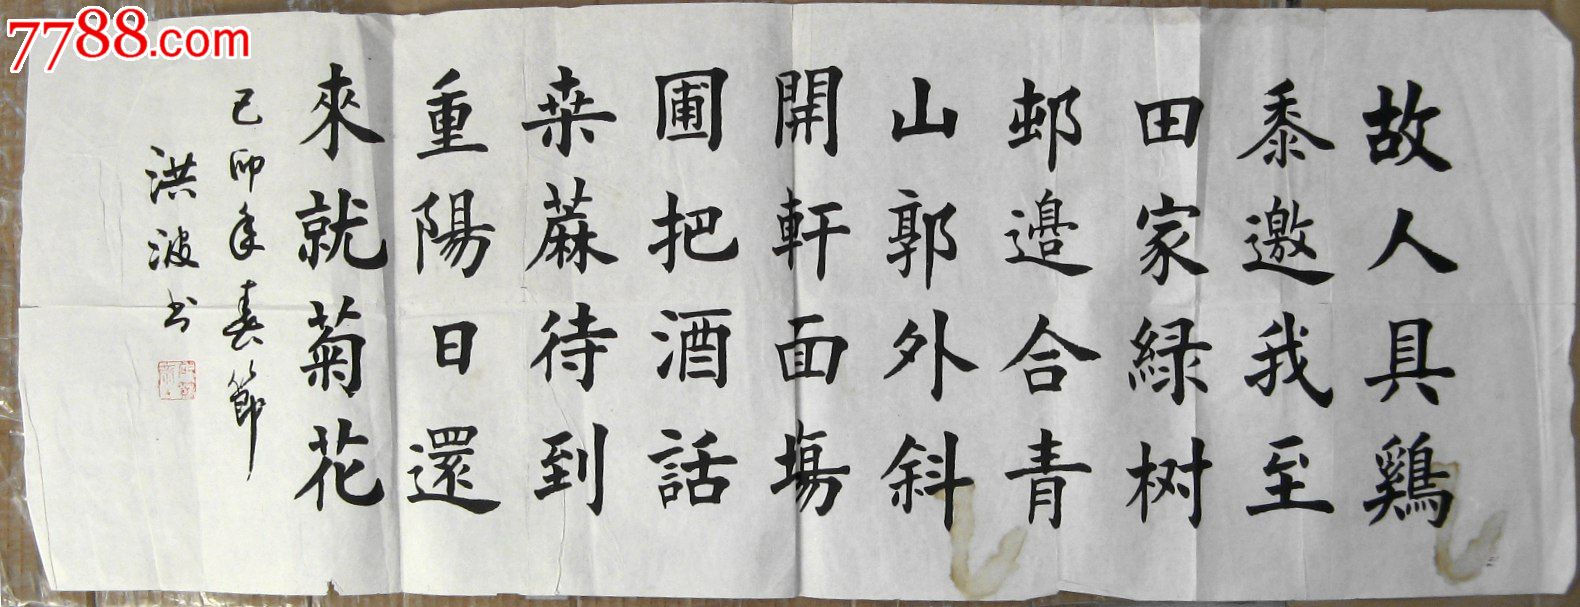 7788.com
故人具鷄
黍邀我至
田家緑树
邨邉合青
山郭外斜
開軒面塲
圃把酒話
桒蔴待到
重陽日還
來就菊花
己卯年春節
洪波书